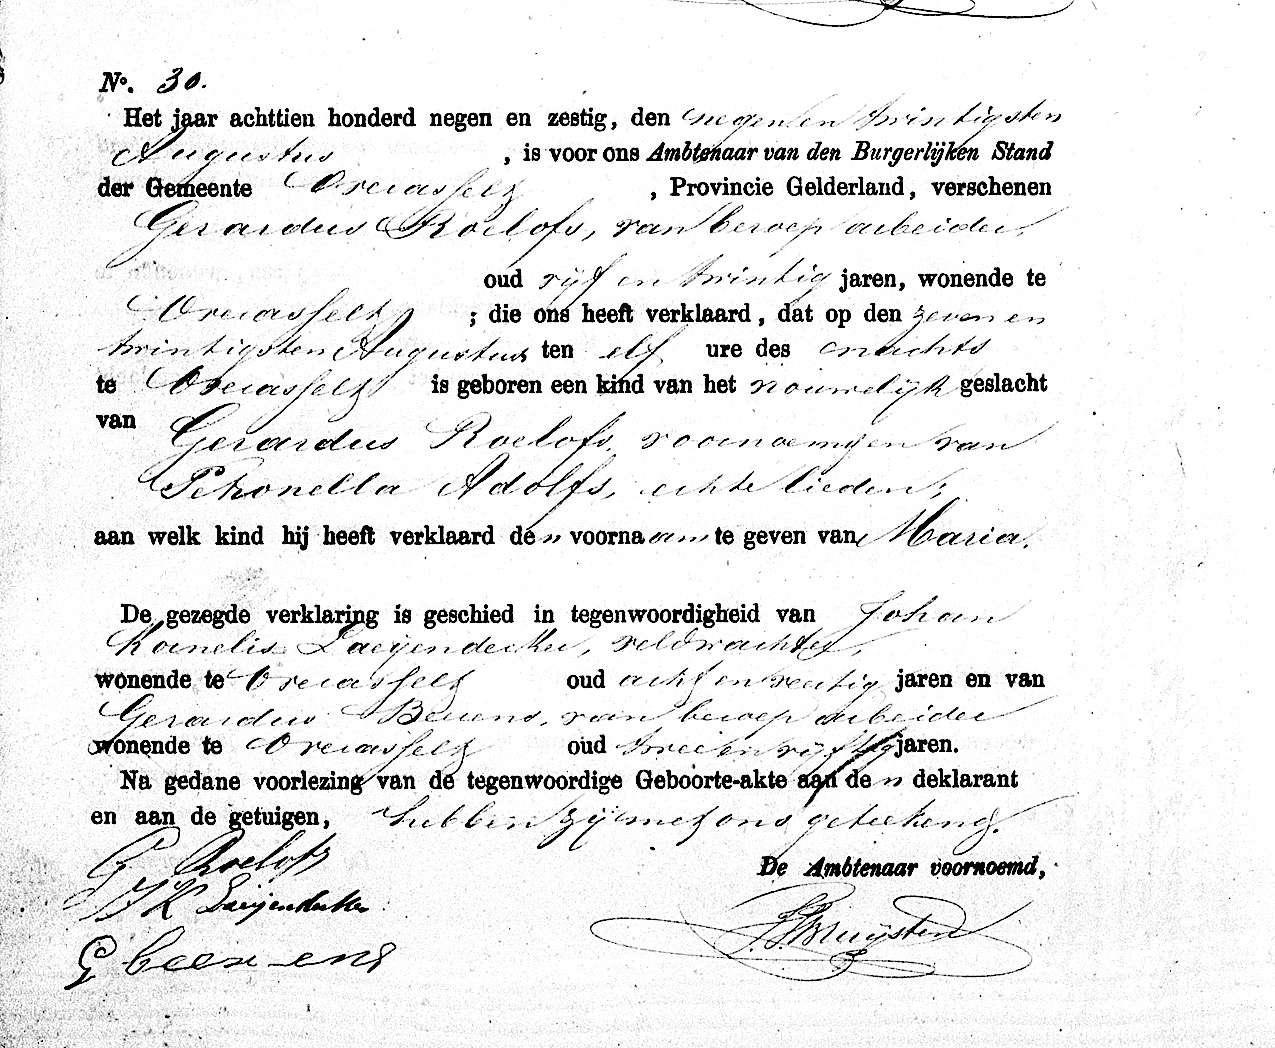 No. 30.
Het jaar achttien honderd negen en zestig, den negen en twintigsten
Augustus, is voor ons Ambtenaar van den Burgerlijken Stand
der Gemeente Overasselt, Provincie Gelderland, verschenen
Gerardus Roelofs, van beroep arbeider,
oud vijf en twintig jaren, wonende te
Overasselt; die ons heeft verklaard, dat op den zeven en
twintigsten Augustus ten elf ure des snachts
te Overasselt is geboren een kind van het vrouwelijk geslacht
van Gerardus Roelofs, voornoemd en van
Petronella Adolfs, echte lieden;
aan welk kind hij heeft verklaard den voornaam te geven van Maria.
De gezegde verklaring is geschied in tegenwoordigheid van Johan
Kornelis Daeijendecker, veldwachter,
wonende te Overasselt oud acht en veertig jaren en van
Gerardus Beuens, van beroep arbeider
wonende te Overasselt oud twee en vijftig jaren.
Na gedane voorlezing van de tegenwoordige Geboorte-akte aan den deklarant
en aan de getuigen, hebben zij met ons geteekend.
G Roelofs
De Ambtenaar voornoemd,
JK
G